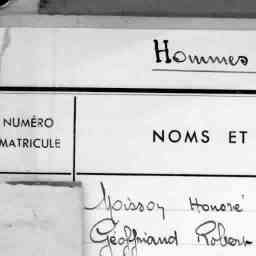 Hommes
NUMÉRO
MATRICULE
NOMS ET
Moisson Honoré
Géoffriand Robert